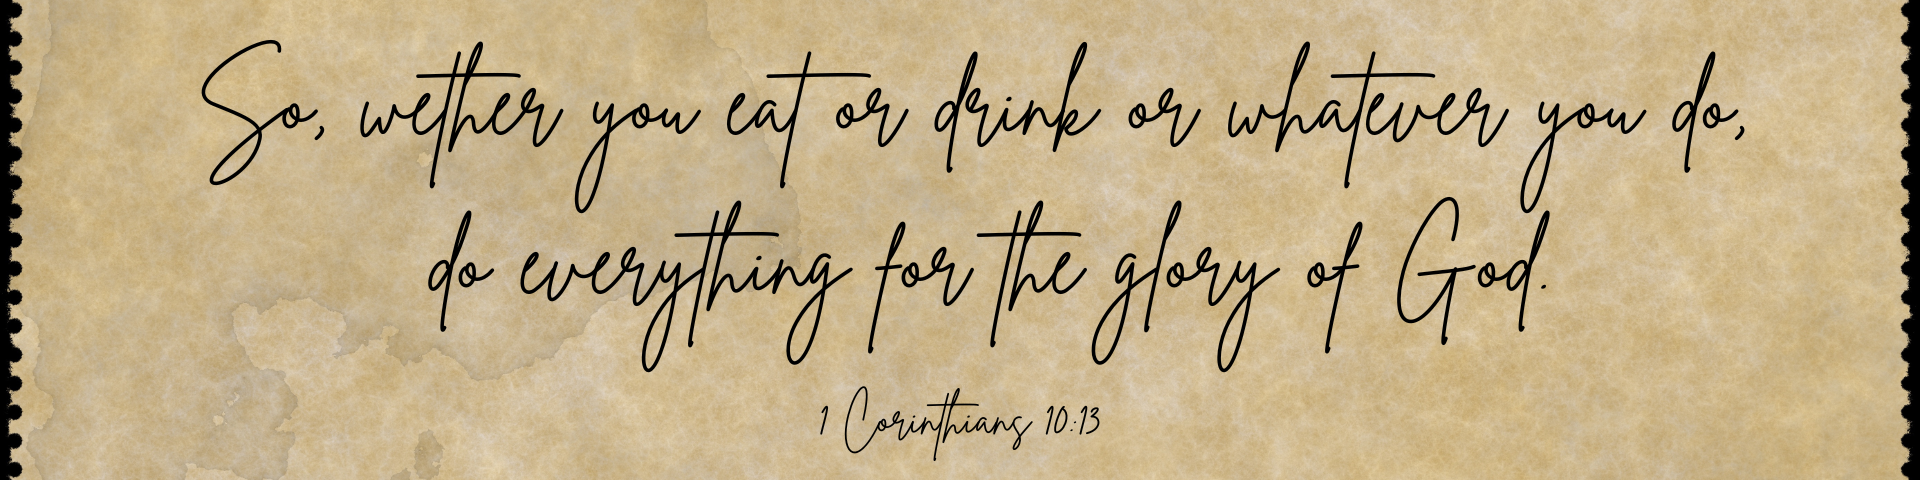 So, wether you eat or drink or whatever you do,
do everything for the glory of God.
1 Corinthians 10:13